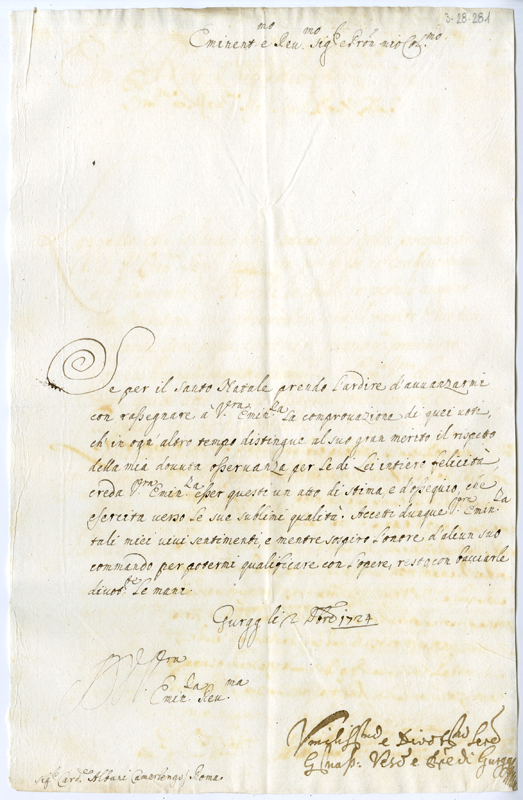 3-28-281
Eminent.mo e Reu.mo Sig.re e Pron mio Col.mo
Se per il Santo Natale prendo l'ardire d'auuanzarmi
con rassegnare à V.ra Emin.za la comprouazione di quei uoti,
ch' in ogn altro tempo distingue al suo gran merito il rispetto
della mia douuta osseruanza per le di Lei intiere felicità,
creda V.ra Emin.za esser questo un atto di stima, e d'ossequio, che
esercita uerso le sue sublimi qualità. Accetti dunque V.ra Emin.za
tali miei uiui sentimenti, e mentre sospiro l'onore d'alcun suo
commando per potermi qualificare con l'opere, resto con bacciarle
diuot.te le mani
Gurgg li 2 Xbre 1724
V.ra
Emin.za Reu.ma
Vmiliss.mo e Diuotiss.mo Seru
Vesc.o e Pre di Gurgg
Sig.r Card.le Albani Camerlengo / Roma